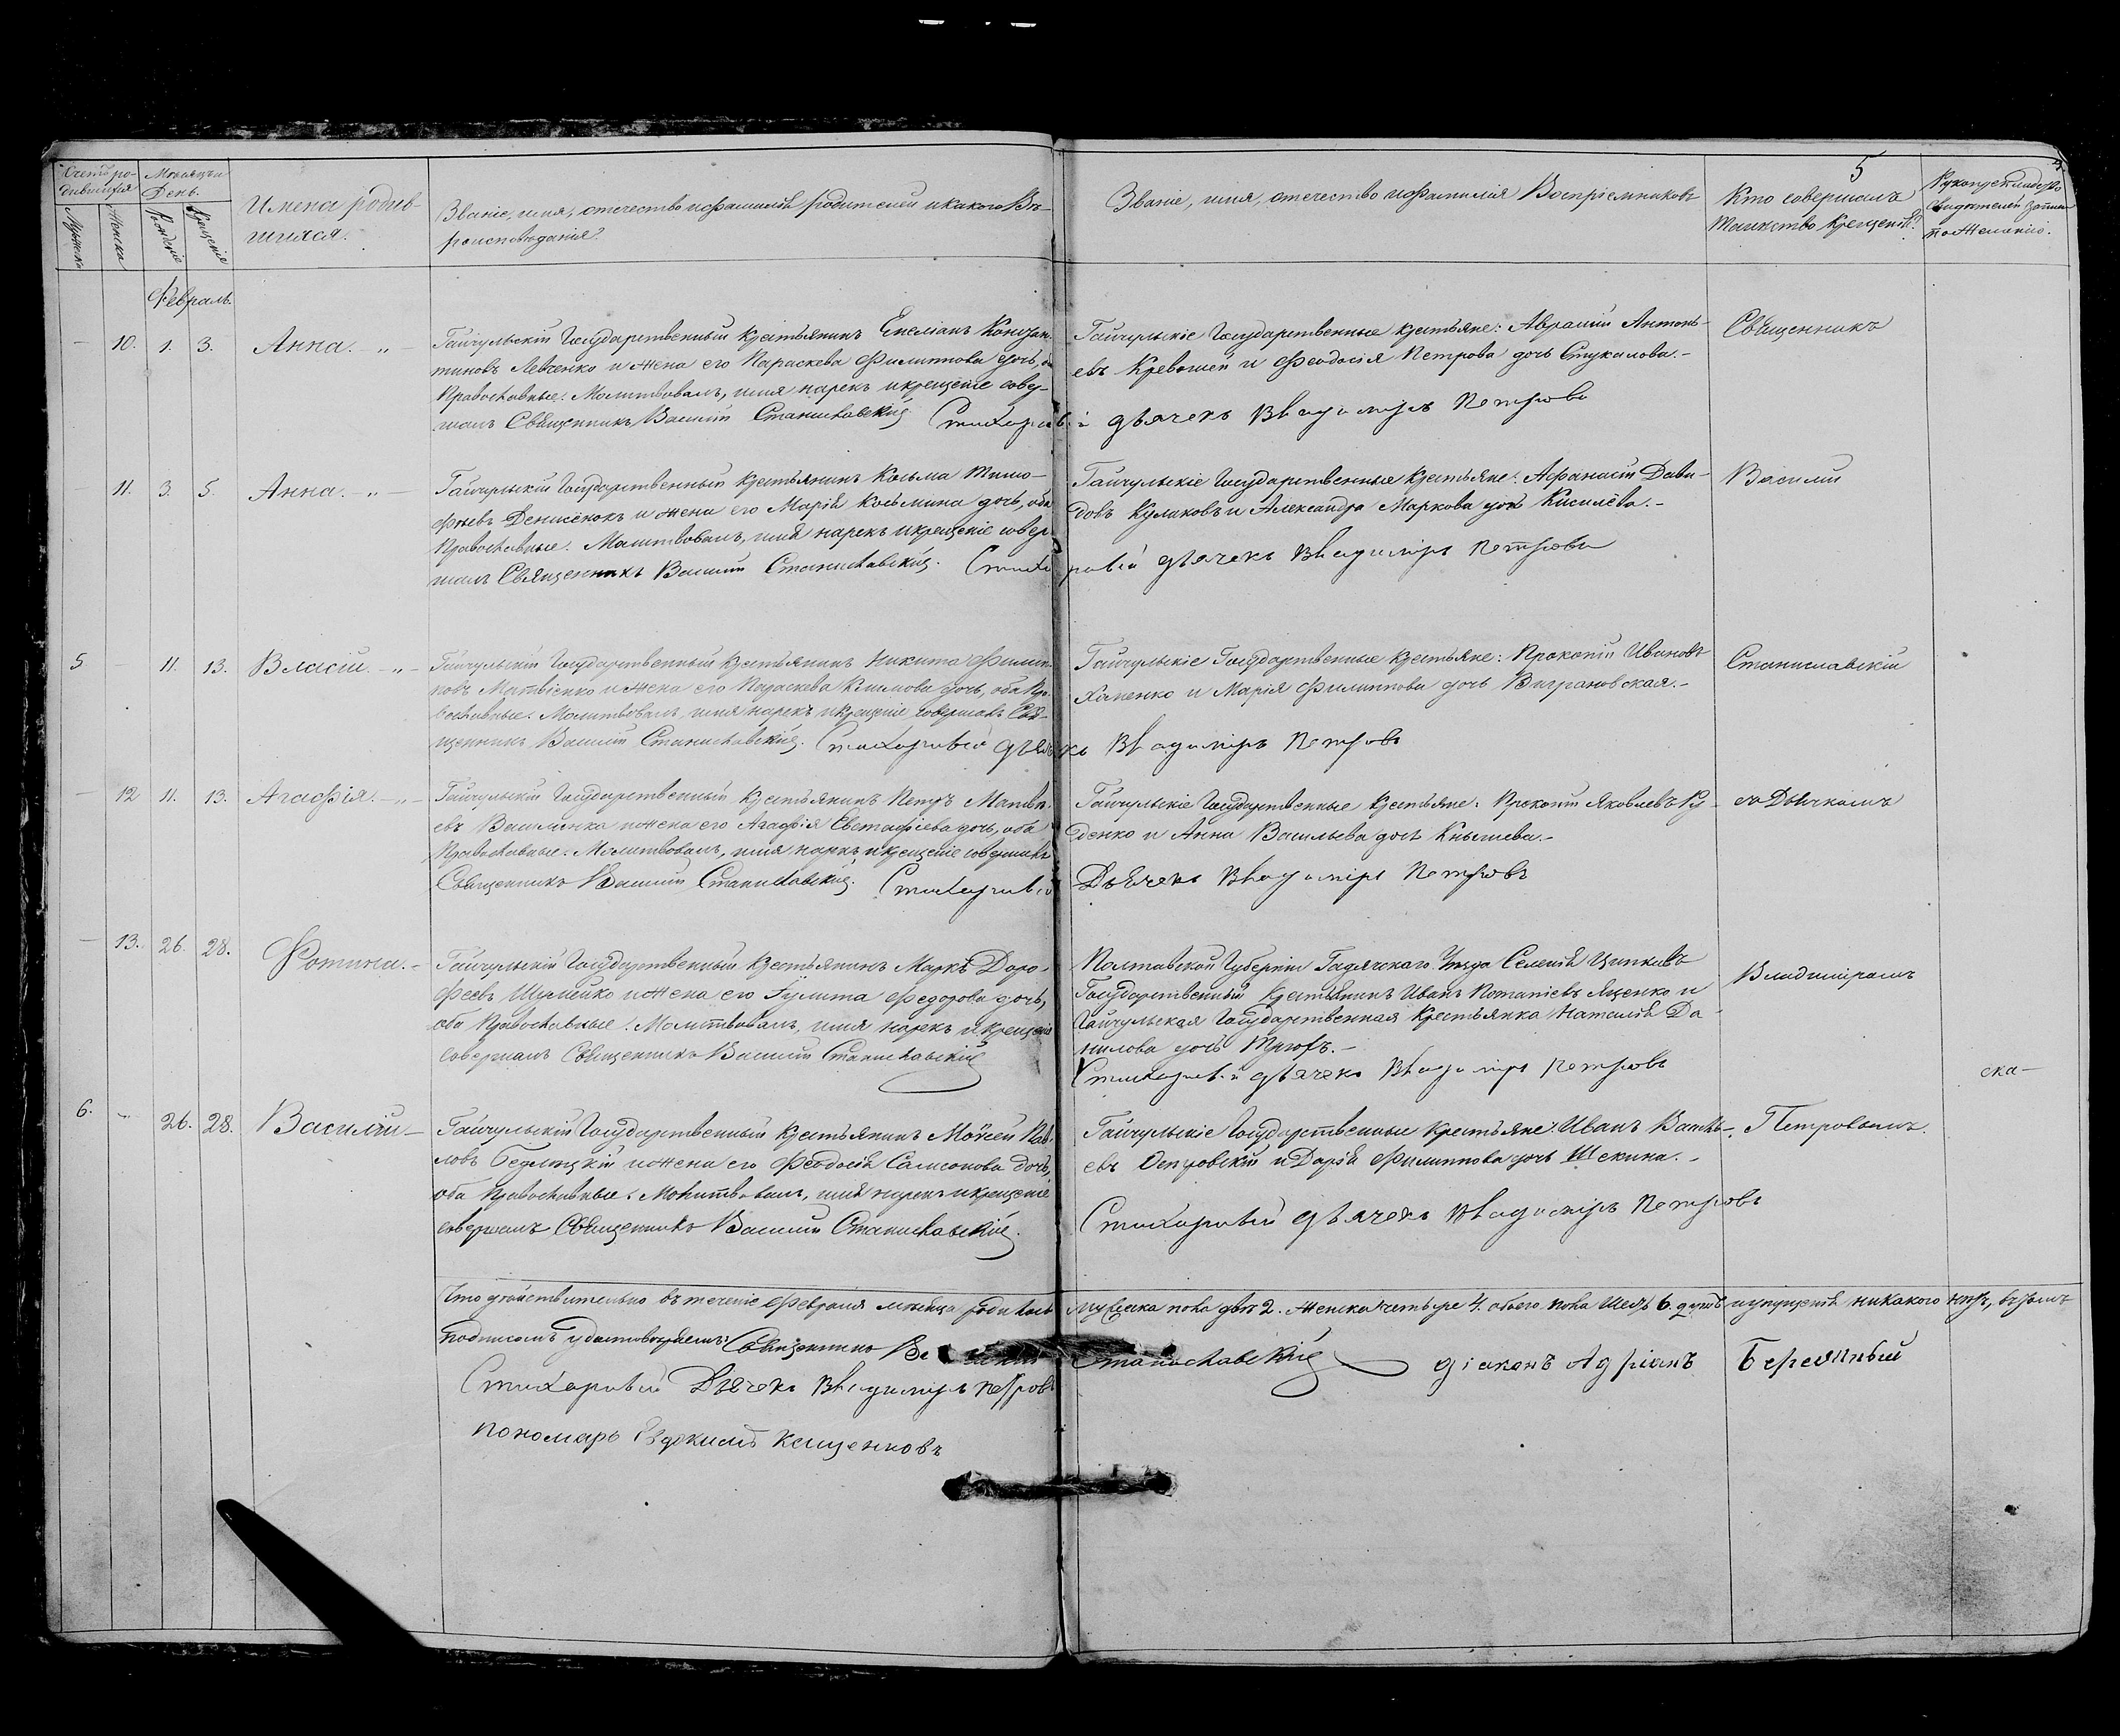 5
Счетъ ро-
дившихся
Мѣсяцъ и
День.
Мужска
Женска
Рожденіе
Крещеніе
Имена родив-
шихся.
Званіе, имя, отечество и фамилія родителей и какого Вѣ-
роисповеданія?
Званіе, имя, отечество и фамилія Воспріемниковъ
Кто совершалъ
Таинство Крещенія?
Рукоприкладство
свидѣтелей записи
по Желанію.
Февраль.
— 10. 1. 3. Анна. „ —
Гайчульскій Государственный крестьянинъ Емеліанъ Констан-
тиновъ Левченко и жена его Параскева Филиппова дочь, оба
Православные. Молитвовалъ, имя нарекъ и крещеніе совер-
шалъ Священникъ Василій Станиславскій.
Гайчульскіе Государственные крестьяне: Аврамій Антонь-
евъ Кревошей и Феодосія Петрова дочь Стукалова.-
Стихарный дьячекъ Владиміръ Петровъ
Священникъ
11. 3. 5. Анна. - „ —
Гайчульскій Государственный крестьянинъ Козьма Тимо-
фѣевъ Денисёнокъ и жена его Марія Козьмина дочь, оба
Православные. Молитвовалъ, имя нарекъ и крещеніе совер-
шалъ Священникъ Василій Станиславскій.
Гайчульскіе Государственные крестьяне: Афанасій Дави-
довъ Куликовъ и Александра Маркова дочь Кисилёва.-
Стихарный дьячекъ Владиміръ Петровъ
Василій
5 — 11. 13. Власій. - „ —
Гайчульскій Государственный крестьянинъ Никита Филип-
повъ Матвіенко и жена его Параскева Климова дочь, оба Пра-
вославные. Молитвовалъ, имя нарекъ и крещеніе совершалъ Свя-
щенникъ Василій Станиславскій.
Гайчульскіе Государственные крестьяне: Прокопій Ивановъ
Хименко и Марія Филиппова дочь Виграновская.-
Стихарный дьячекъ Владиміръ Петровъ
Станиславскій
— 12 11. 13. Агафія. - „ —
Гайчульскій Государственный крестьянинъ Петръ Матвѣ-
евъ Василенко и жена его Агафія Евстафіева дочь, оба
Православные. Молитвовалъ, имя нарекъ и крещеніе совершалъ
Священникъ Василій Станиславскій.
Гайчульскіе Государственные крестьяне: Прокопій Яковлевъ Ру-
денко и Анна Васильева дочь Кнышева.-
Стихарный Дьячекъ Владиміръ Петровъ
съ Дьячкомъ
— 13. 26. 28. Фотинія. -
Гайчульскій Государственный крестьянинъ Маркъ Доро-
феевъ Шулейко и жена его Іулита Федорова дочь,
оба Православные. Молитвовалъ, имя нарекъ и крещеніе
совершалъ Священникъ Василій Станиславскій
Полтавской Губерніи Гадячскаго Уѣзда Селенія
Государственный крестьянинъ Иванъ Потапіевъ Яценко и
Гайчульская Государственная Крестьянка Наталія Да-
нилова дочь
Стихарный дьячекъ Владиміръ Петровъ
Владиміромъ
ска—
6. — 26. 28. Василій —
Гайчульскій Государственный крестьянинъ Моѵсей Пав-
ловъ Бедлицкій и жена его Феодосія Самсонова дочь,
оба Православные. Молитвовалъ, имя нарекъ и крещеніе
совершалъ Священникъ Василій Станиславскій.
Гайчульскіе Государственные крестьяне: Иванъ Василь-
евъ Островскій и Дарія Филиппова дочь Щекина.-
Стихарный дьячекъ Владиміръ Петровъ
Петровымъ.
Что дѣйствительно въ теченіе Февраля мѣсяца родилось мужеска пола двѣ 2. женска четыре 4. обоего пола шесть 6. душъ и пропусковъ никакого нѣтъ, въ томъ
подписомъ удостовѣряемъ: Священникъ Василій Станиславскій діаконъ Адріанъ
Стихарный Дьячекъ Владиміръ Петровъ
пономарь Евдокимъ Кащенковъ